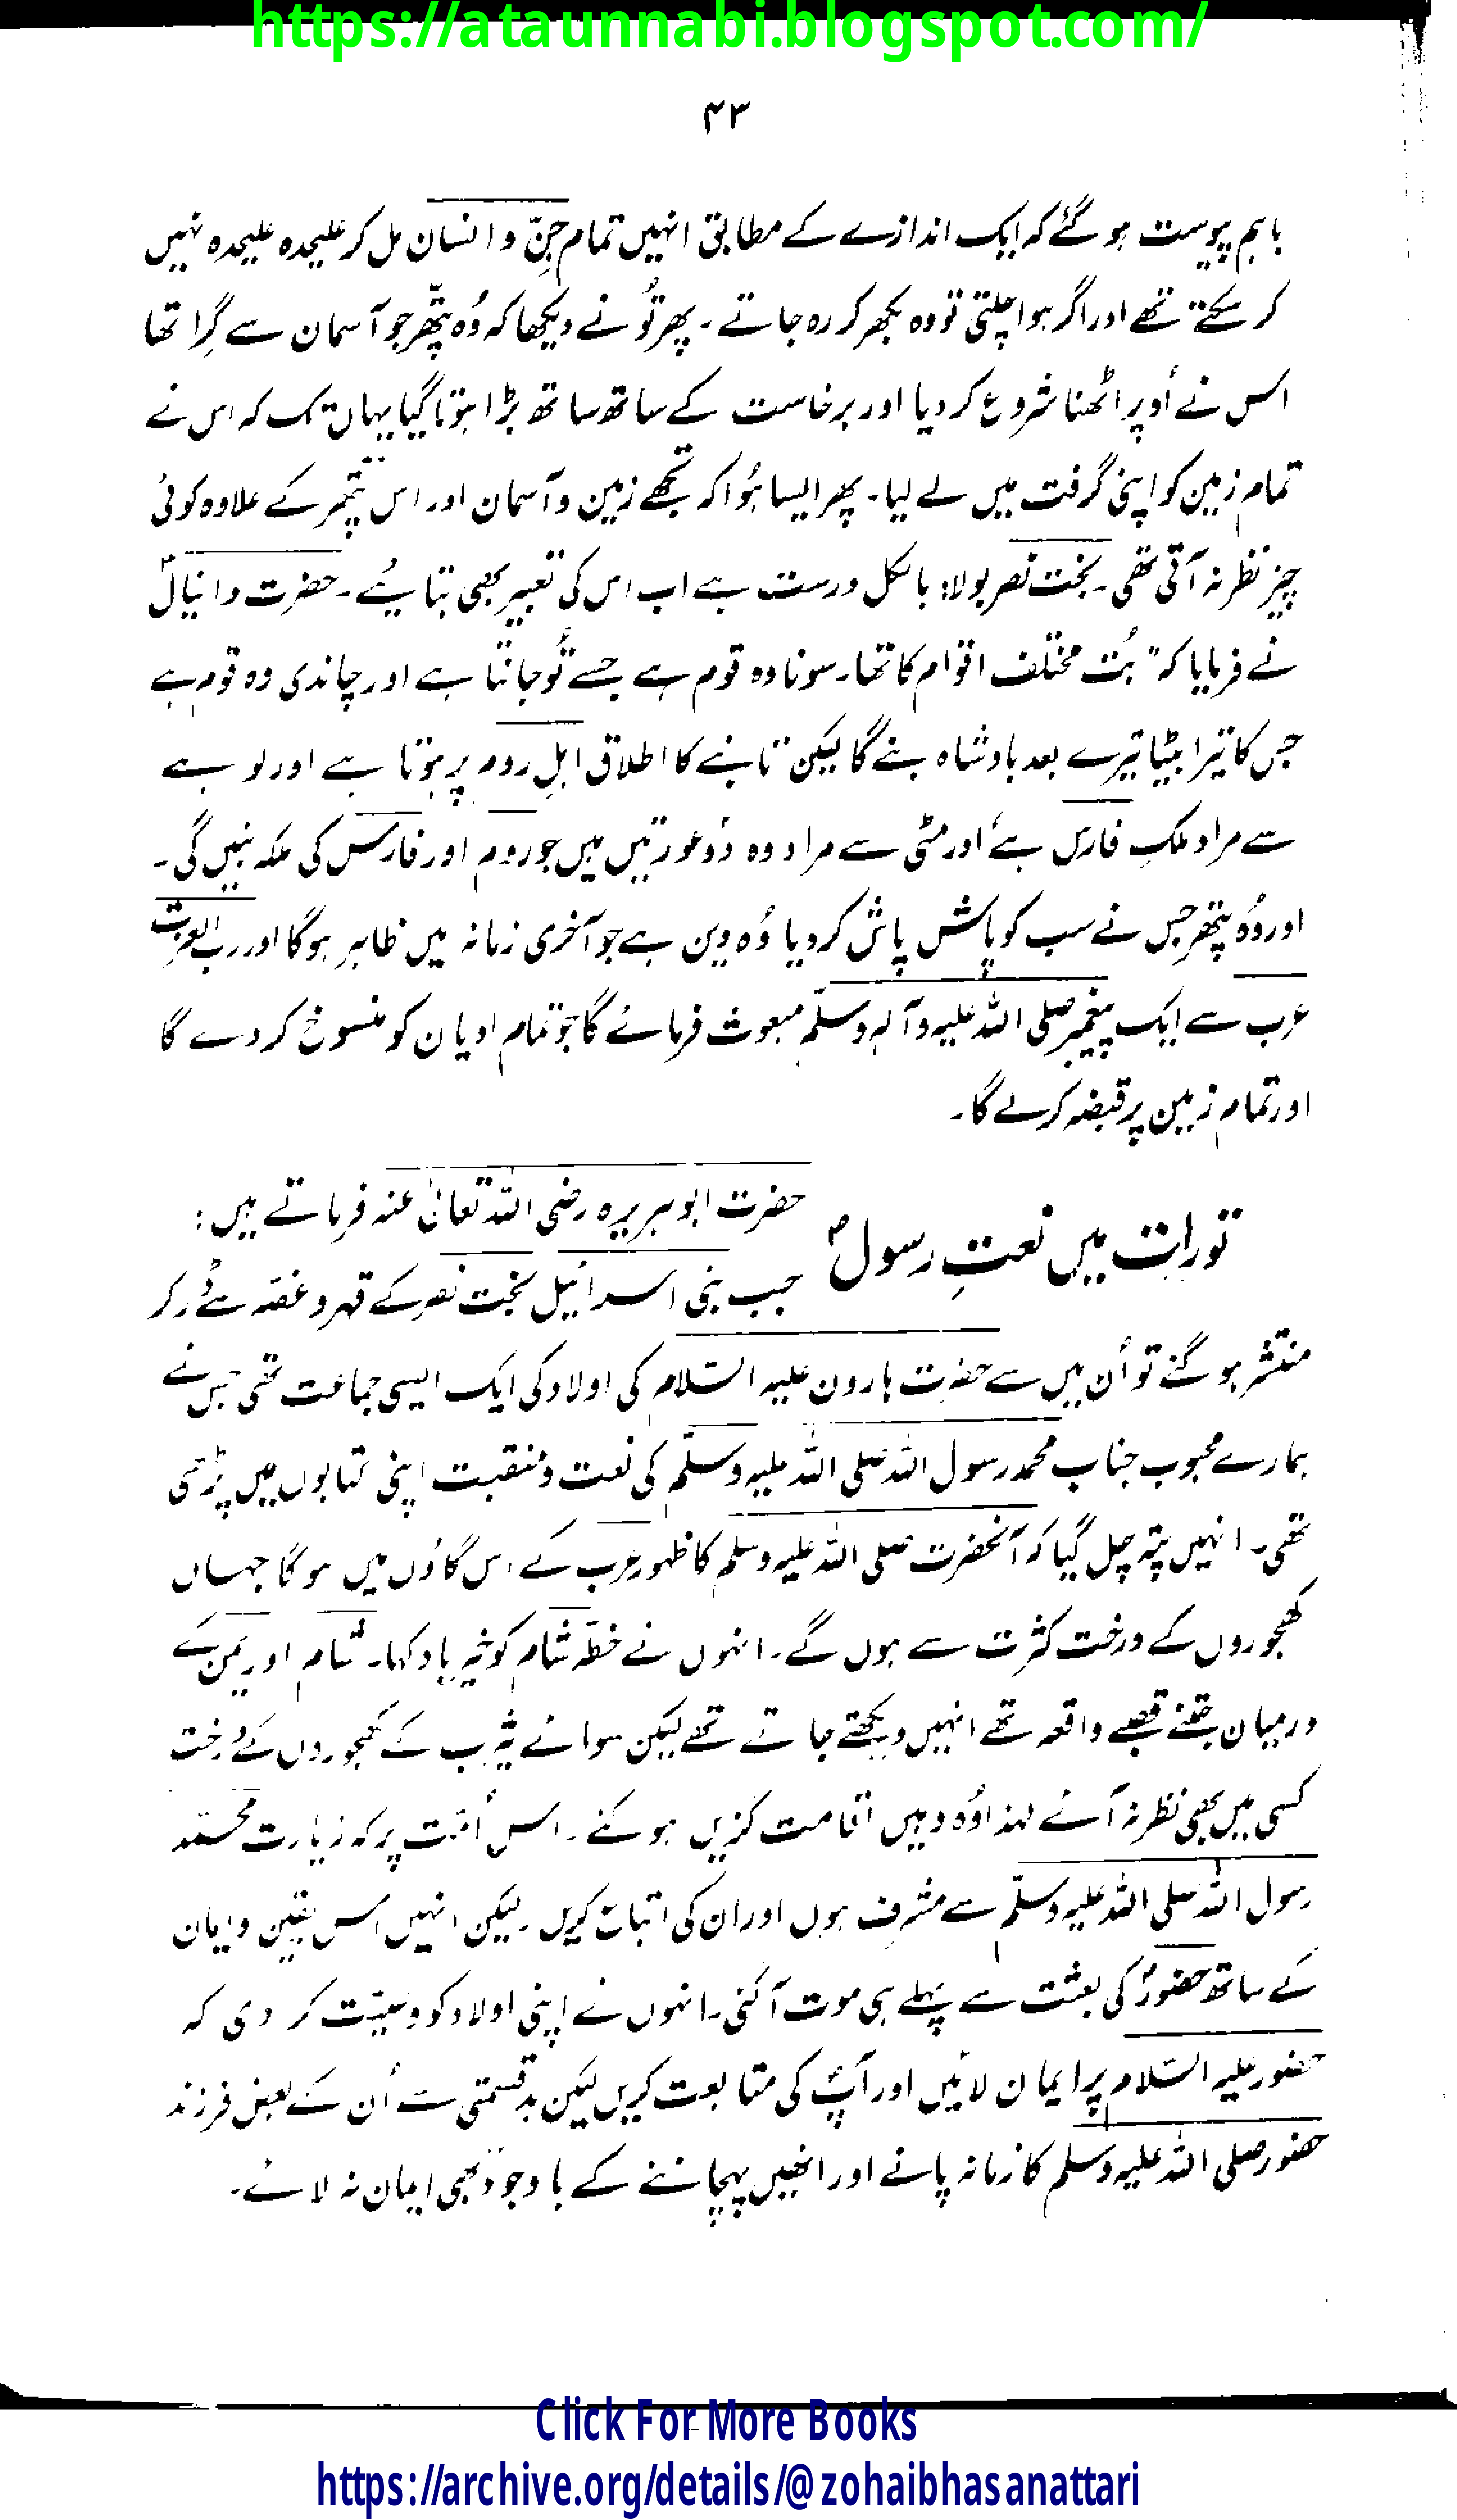 https://ataunnabi.blogspot.com/
۴۳
باہم پیوست ہوگئے کہ ایک اندازے کے مطابق انہیں تمام جِنّ و انسان مل کر علیحدہ علیحدہ نہیں
کر سکتے تھے اور اگر ہوا چلتی تو وہ بکھر کر رہ جاتے۔ پھر تُو نے دیکھا کہ وُہ پتّھر جو آسمان سے گِرا تھا
اس نے اُوپر اٹھنا شروع کر دیا اور برخاست کے ساتھ ساتھ بڑا ہوتا گیا یہاں تک کہ اس نے
تمام زمین کو اپنی گرفت میں لے لیا۔ پھر ایسا ہُوا کہ تجھے زمین و آسمان اور اس پتّھر کے علاوہ کوئی
چیز نظر نہ آتی تھی۔ بخت نصر بولا: بالکل درست ہے اب اس کی تعبیر بھی بتائیے۔ حضرت دانیالؑ
نے فرمایا کہ "بُت مختلف اقوام کا تھا۔ سونا وہ قوم ہے جسے تُو جانتا ہے اور چاندی وہ قوم ہے
جس کا تیرا بیٹا تیرے بعد بادشاہ بنے گا لیکن تانبے کا اطلاق اہلِ روم پر ہوتا ہے اور لوہے
سے مراد ملکِ فارس ہے اور مٹی سے مراد وہ دو عورتیں ہیں جو روم اور فارس کی ملکہ بنیں گی۔
اور وُہ پتھر جس نے سب کو پاش پاش کر دیا وُہ دین ہے جو آخری زمانہ میں ظاہر ہوگا اور رب العزت
عرب سے ایک پیغمبر صلی اللہ علیہ وآلہٖ وسلّم مبعوث فرمائے گا جو تمام ادیان کو منسوخ کر دے گا
اور تمام زمین پر قبضہ کرلے گا۔
تورات میں نعتِ رسولؐ
حضرت ابو ہریرہ رضی اللہ تعالیٰ عنہ فرماتے ہیں:
جب بنی اسرائیل بخت نصر کے قہر و غصّہ سے ڈر کر
منتشر ہوگئے تو اُن میں سے حضرت ہارون علیہ السّلام کی اولاد کی ایک ایسی جماعت تھی جس نے
ہمارے محبوب جناب محمد رسول اللہ صلی اللہ علیہ وسلّم کی نعت و منقبت اپنی کتابوں میں پڑھی
تھی۔ انہیں پتہ چل گیا کہ آنحضرت صلی اللہ علیہ وسلم کا ظہور عرب کے اس گاؤں میں ہوگا جہاں
کھجوروں کے درخت کثرت سے ہوں گے۔ انہوں نے خطّہ شام کو خیر باد کہا۔ شام اور یمن کے
درمیان جتنے قصبے واقعہ تھے انہیں دیکھتے جاتے تھے لیکن سوائے یثرب کے کھجوروں کے درخت
کسی میں بھی نظر نہ آئے لہذا وُہ وہیں اقامت گزیں ہوگئے۔ اس اُمّت پر کہ زیارت محمّد
رسول اللہ صلی اللہ علیہ وسلّم سے مشرف ہوں اور ان کی اتباع کریں۔ لیکن انہیں اس یقین و ایمان
کے ساتھ حضورؐ کی بعثت سے پہلے ہی موت آگئی۔ انہوں نے اپنی اولاد کو وصیّت کر دی کہ
حضور علیہ السّلام پر ایمان لائیں اور آپؐ کی متابعت کریں لیکن بدقسمتی سے اُن کے بعض فرزند
حضور صلی اللہ علیہ وسلم کا زمانہ پانے اور انھیں پہچاننے کے باوجود بھی ایمان نہ لائے۔
Click For More Books
https://archive.org/details/@zohaibhasanattari